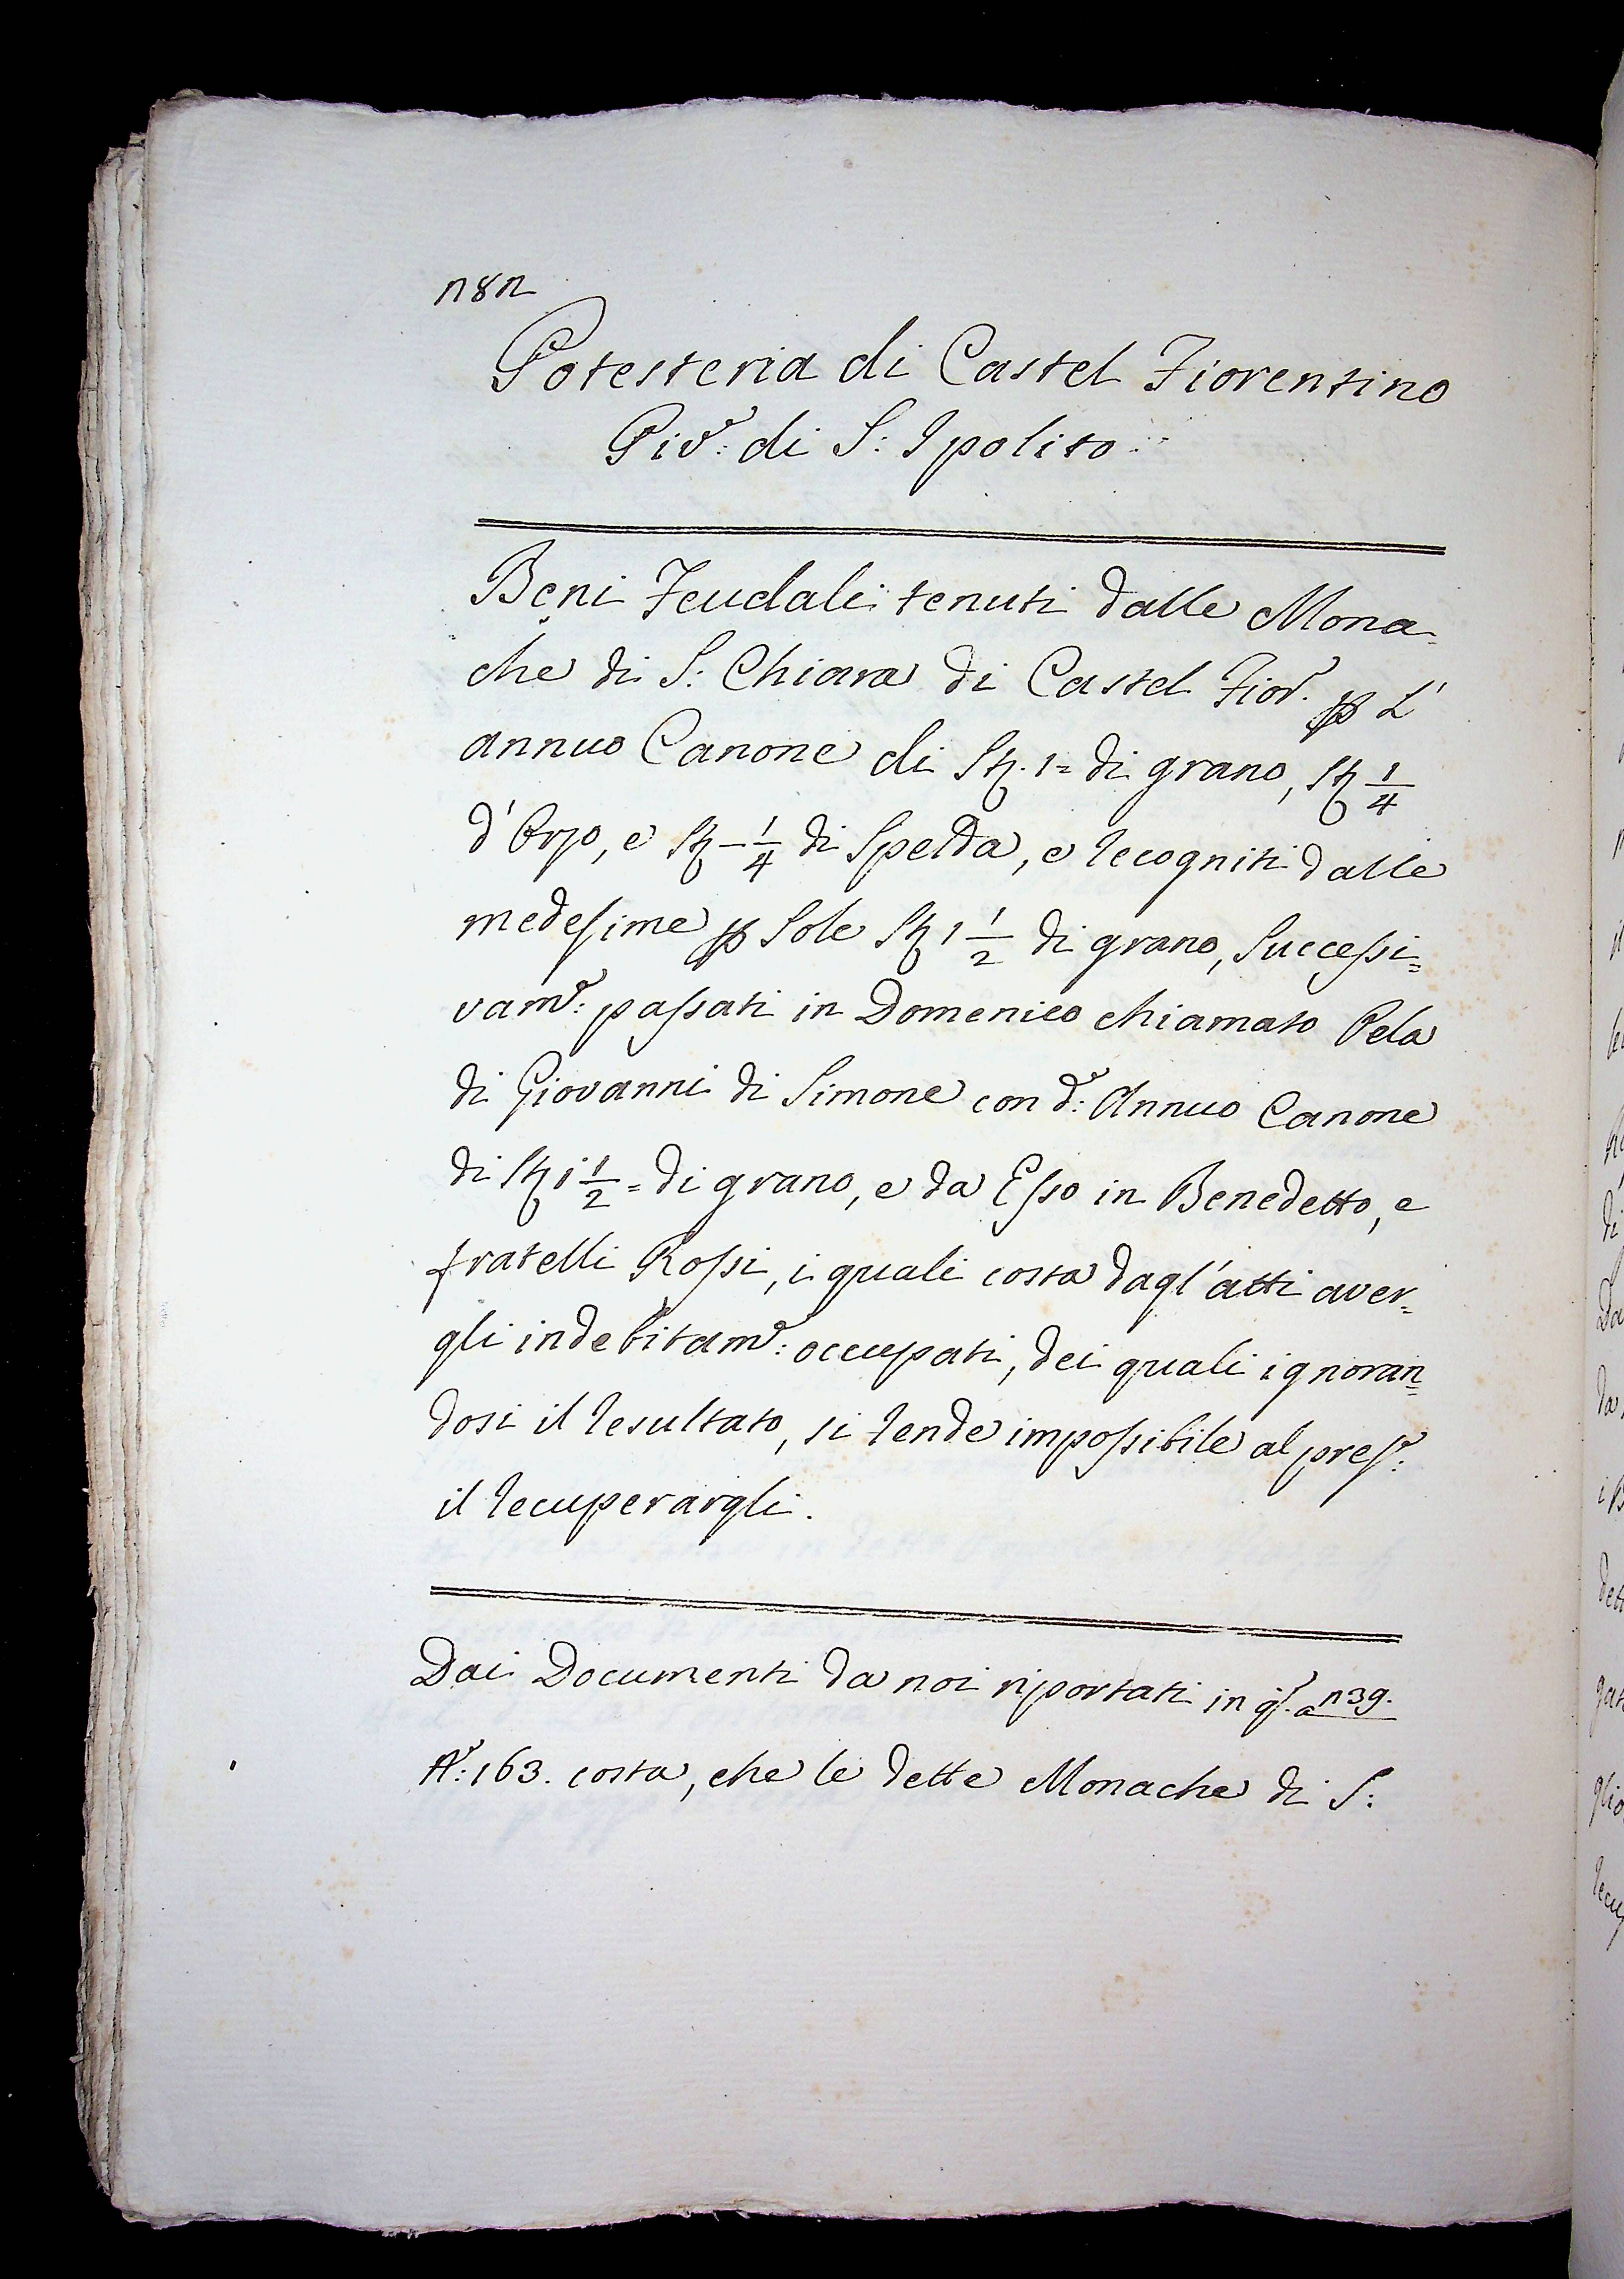 n8n
Potesteria di Castel Fiorentino
Piv.e: di S: Ipolito
Beni Feudali tenuti dalle Mona=
che di S: Chiara di Castel Fior.o p L'
annuo Canone di St. 1= di grano, St 1/4
d'Orzo, e St - 1/4 di Spelda, e recogniti dalle
medesime p sole St 1 1/2 di grano, successi=
vam.e: passati in Domenico chiamato Pela
di Giovanni di Simone con d.o: Annuo Canone
di St 1 1/2 = di grano, e da Esso in Benedetto, e
fratelli Rossi, i quali costa dagl'atti aver=
gli indebitam.e: occupati, dei quali ignoran=
dosi il resultato, si rende impossibile al pres.e:
il recuperargli.
Dai Documenti da noi riportati in q.o a n39.
163. costa, che le dette Monache di S: